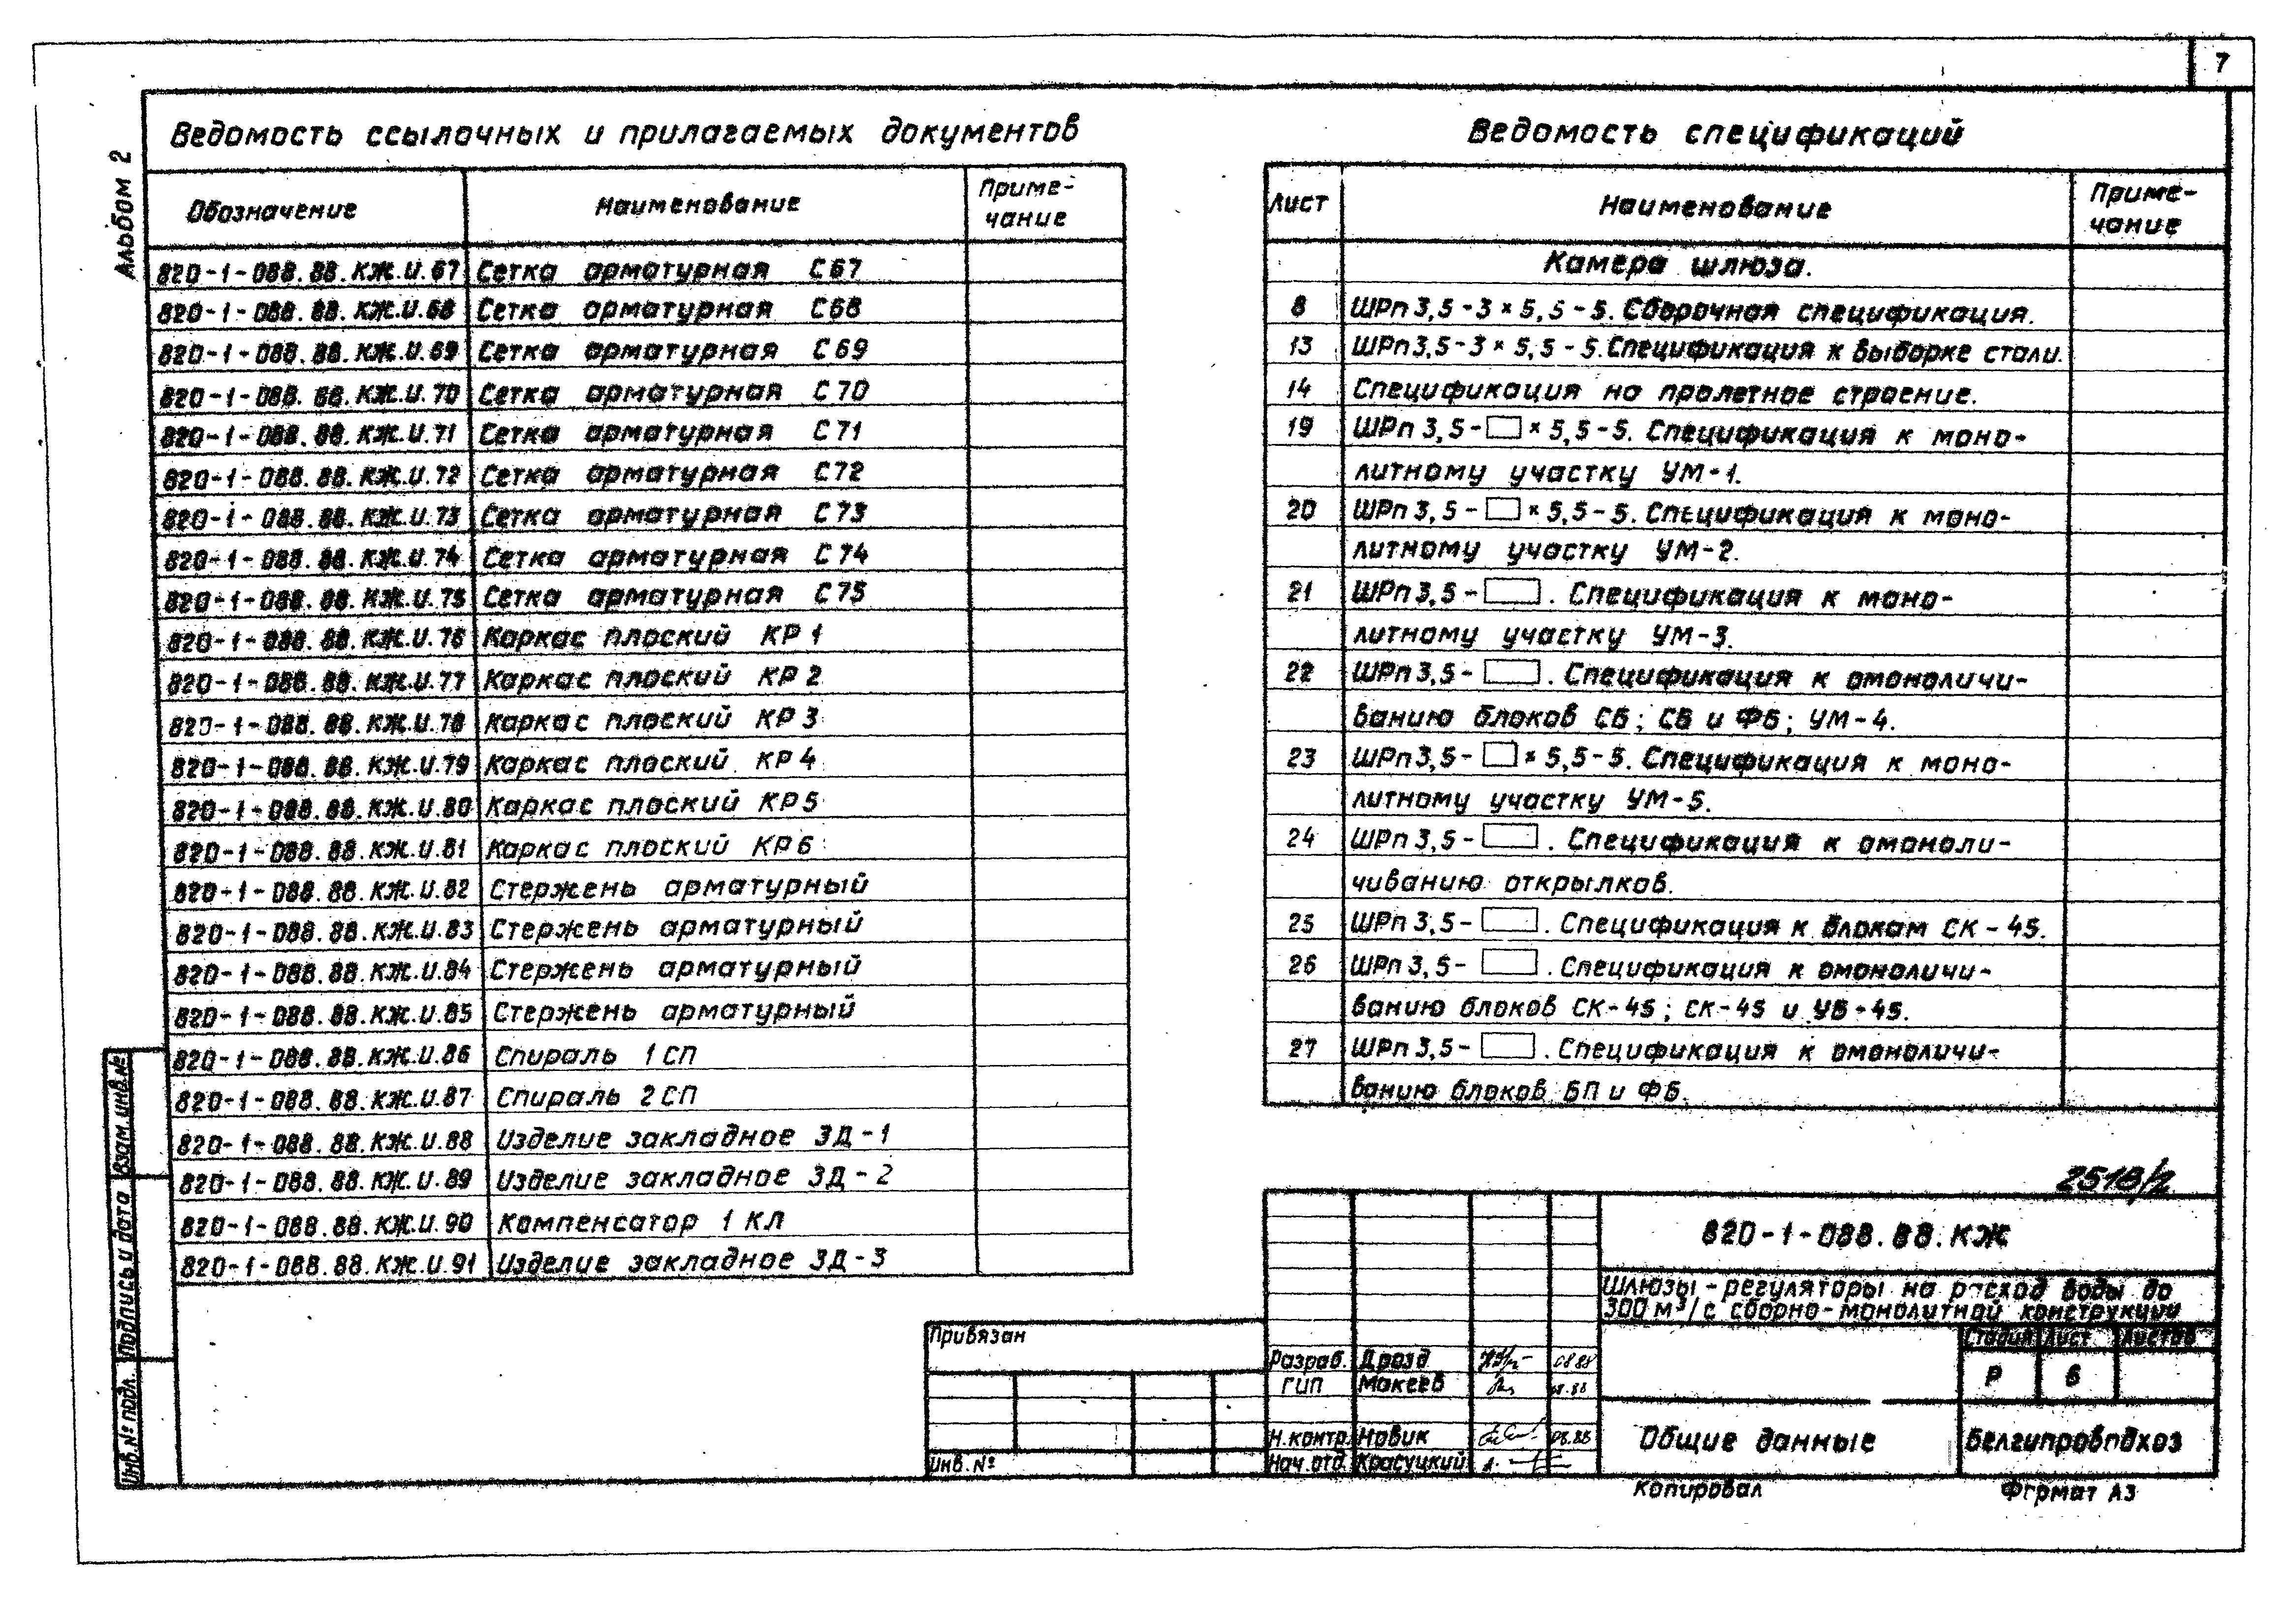 7
Альбом 2
Ведомость ссылочных и прилагаемых документов
Обозначение Наименование Приме-
чание
820-1-088.88.КЖ.И.67 Сетка арматурная С67
820-1-088.88.КЖ.И.68 Сетка арматурная С68
820-1-088.88.КЖ.И.69 Сетка арматурная С69
820-1-088.88.КЖ.И.70 Сетка арматурная С70
820-1-088.88.КЖ.И.71 Сетка арматурная С71
820-1-088.88.КЖ.И.72 Сетка арматурная С72
820-1-088.88.КЖ.И.73 Сетка арматурная С73
820-1-088.88.КЖ.И.74 Сетка арматурная С74
820-1-088.88.КЖ.И.75 Сетка арматурная С75
820-1-088.88.КЖ.И.76 Каркас плоский КР1
820-1-088.88.КЖ.И.77 Каркас плоский КР2
820-1-088.88.КЖ.И.78 Каркас плоский КР3
820-1-088.88.КЖ.И.79 Каркас плоский КР4
820-1-088.88.КЖ.И.80 Каркас плоский КР5
820-1-088.88.КЖ.И.81 Каркас плоский КР6
820-1-088.88.КЖ.И.82 Стержень арматурный
820-1-088.88.КЖ.И.83 Стержень арматурный
820-1-088.88.КЖ.И.84 Стержень арматурный
820-1-088.88.КЖ.И.85 Стержень арматурный
820-1-088.88.КЖ.И.86 Спираль 1СП
820-1-088.88.КЖ.И.87 Спираль 2СП
820-1-088.88.КЖ.И.88 Изделие закладное ЗД-1
820-1-088.88.КЖ.И.89 Изделие закладное ЗД-2
820-1-088.88.КЖ.И.90 Компенсатор 1КЛ
820-1-088.88.КЖ.И.91 Изделие закладное ЗД-3
Ведомость спецификаций
Лист Наименование Приме-
чание
Камера шлюза.
8 ШРп3,5-3×5,5-5. Сборочная спецификация.
13 ШРп3,5-3×5,5-5. Спецификация к выборке стали.
14 Спецификация на пролетное строение.
19 ШРп3,5-□×5,5-5. Спецификация к моно-
литному участку УМ-1.
20 ШРп3,5-□×5,5-5. Спецификация к моно-
литному участку УМ-2.
21 ШРп3,5-□. Спецификация к моно-
литному участку УМ-3.
22 ШРп3,5-□. Спецификация к омоноличи-
ванию блоков СБ; СБ и ФБ; УМ-4.
23 ШРп3,5-□×5,5-5. Спецификация к моно-
литному участку УМ-5.
24 ШРп3,5-□. Спецификация к омоноли-
чиванию открылков.
25 ШРп3,5-□. Спецификация к блокам СК-45.
26 ШРп3,5-□. Спецификация к омоноличи-
ванию блоков СК-45; СК-45 и УБ-45.
27 ШРп3,5-□. Спецификация к омоноличи-
ванию блоков БП и ФБ.
2518/2
820-1-088.88.КЖ
Шлюзы-регуляторы на расход воды до
300 м³/с сборно-монолитной конструкции
Стадия Лист Листов
Р 6
Общие данные
Белгипроводхоз
Разраб. Дрозд 08.88
ГИП Макеев
Н.контр. Новик 08.88
Нач.отд. Красуцкий
Привязан
Инв.№
Взам.инв.№
Подпись и дата
Инв.№ подл.
Копировал
Формат А3